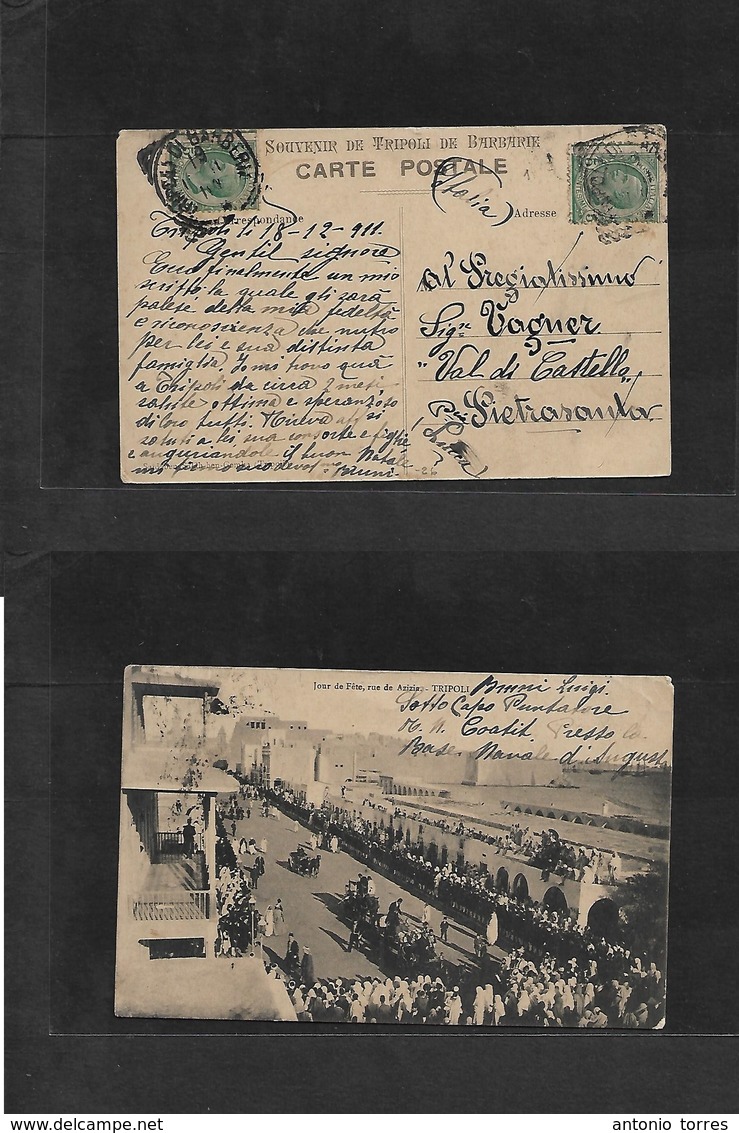 SOUVENIR DE TRIPOLI DE BARBARIE
CARTE POSTALE
(Italia)
Correspondance
Adresse
Tripoli li 18-12-911.
Gentil signore
Eccovi finalmente un mio
scritto, la quale gli sarà
palese della mia fedeltà
e riconoscienza che nutro
per lei e sua distinta
famiglia. Io mi trovo quà
a Tripoli da circa 2 mesi,
salute ottima e speranzoso
di loro tutti. Riceva aff.si
saluti a lei, sua consorte e figlie
e auguriandole il buon Natale
mi
Bruni
Al Pregiatissimo
Sigr Vagner
"Val di Castello"
Per Pietrasanta
(Lucca)
Jour de Fête, rue de Azizia. - TRIPOLI
Bruni Luigi.
Sotto Capo Puntatore
R. N. Coatit Presso la
Base Navale d'Augusta
antonio torres